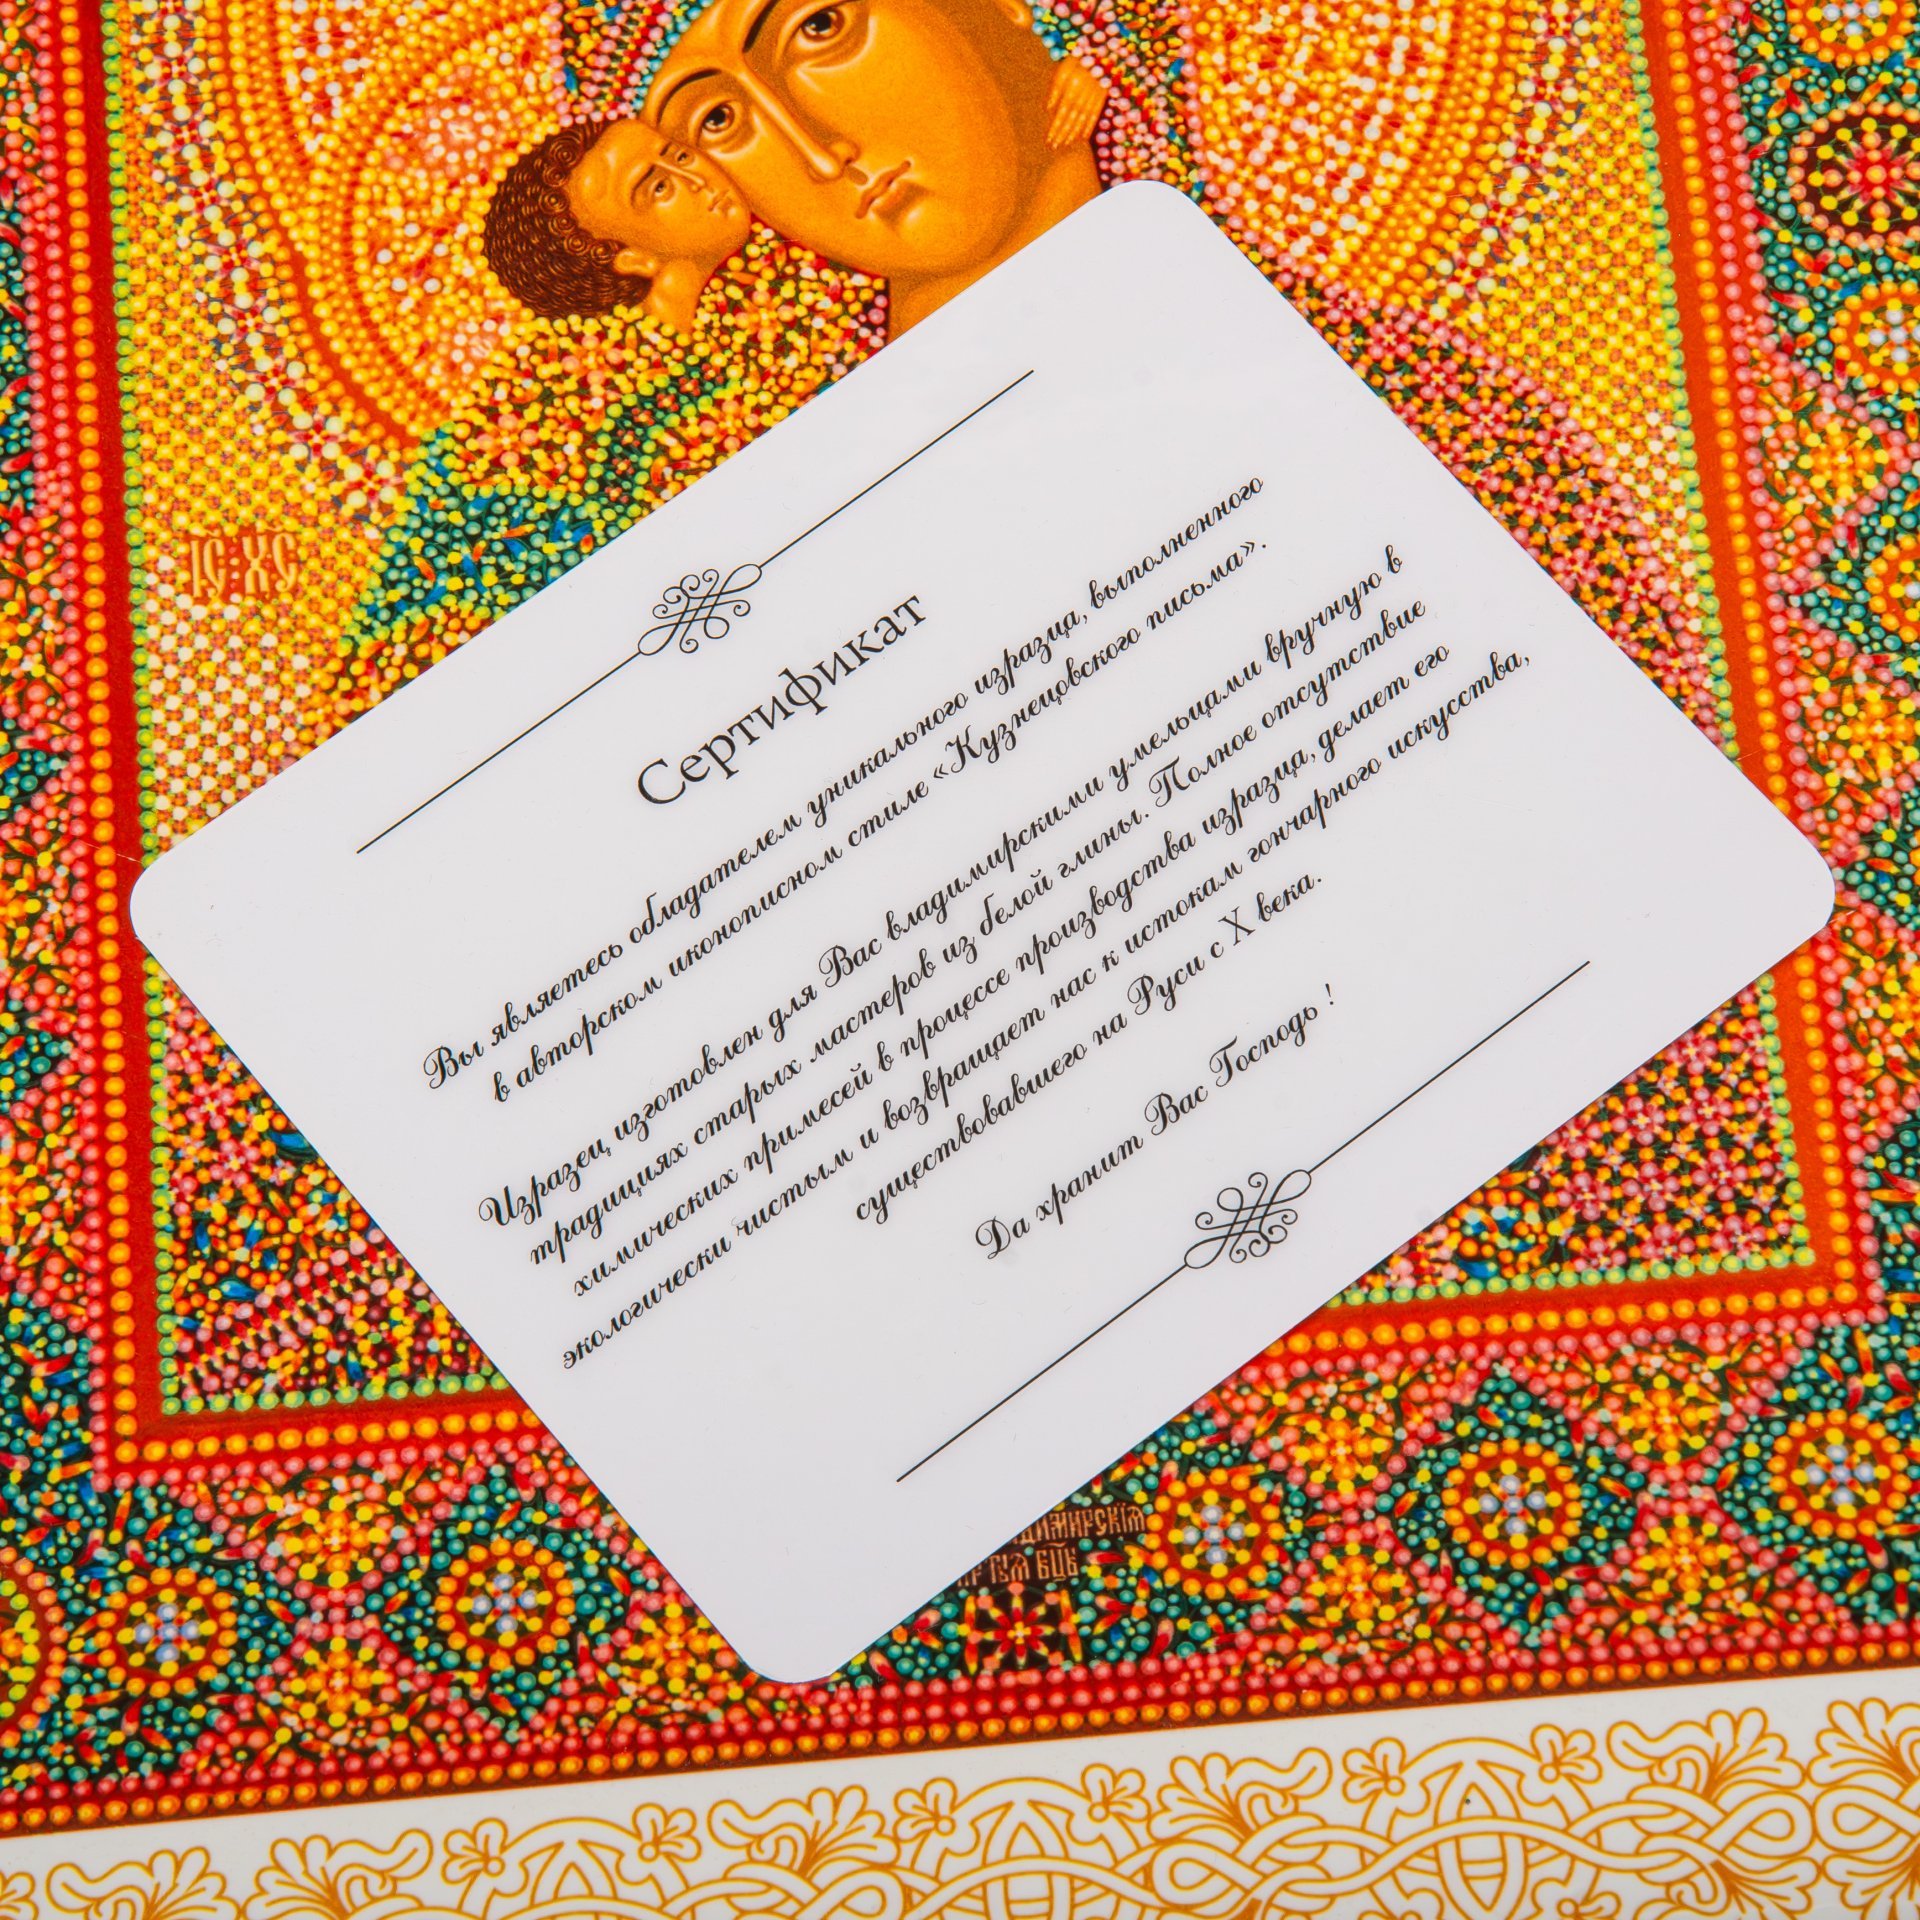 IC:XC
Сертификат
Вы являетесь обладателем уникального изразца, выполненного
в авторском иконописном стиле «Кузнецовского письма».
Изразец изготовлен для Вас владимирскими умельцами вручную в
традициях старых мастеров из белой глины. Полное отсутствие
химических примесей в процессе производства изразца, делает его
экологически чистым и возвращает нас к истокам гончарного искусства,
существовавшего на Руси с X века.
Да хранит Вас Господь !